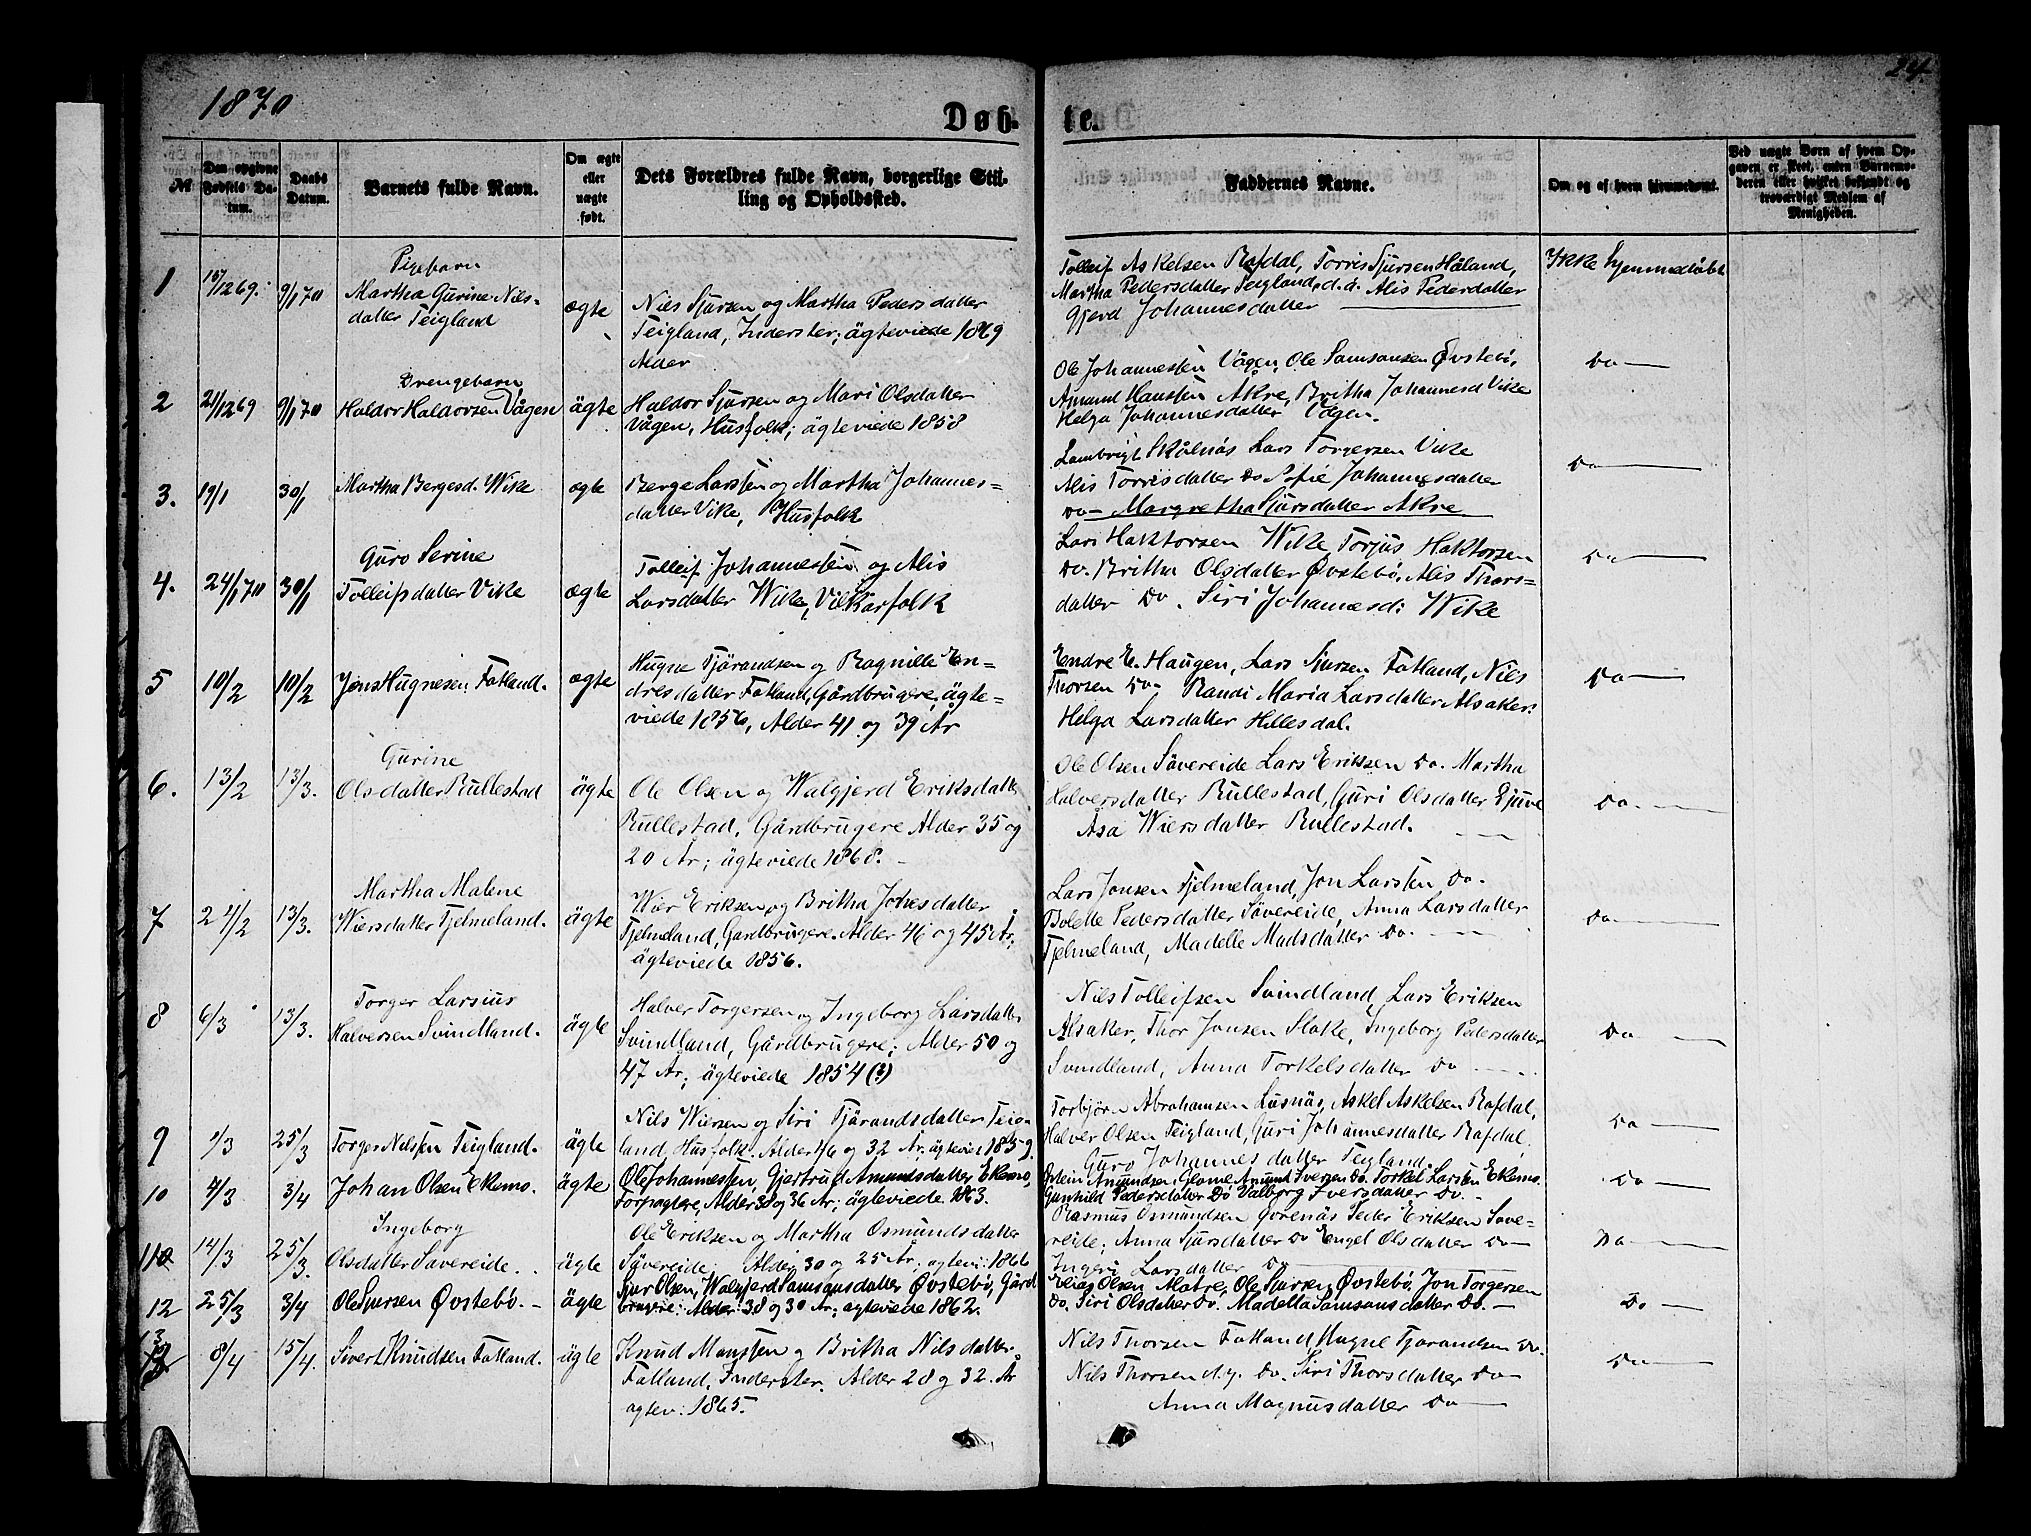 1870
24
Døb-
te.
№
Den opgivne Fødsels Da-tum.
Daabs Datum.
Barnets fulde Navn.
Om ægte eller uægte født.
Dets Forældres fulde Navn, borgerlige Stil-
ling og Opholdssted.
Faddernes Navne.
Om og af hvem hjemmedøbt.
Ved uægte Børn af hvem Op-
gaven er skeet, enten Barnemo-
deren eller hvilket bekjendt og
troværdigt Medlem af
Menigheden.
1
15/12 69.
9/1 70
Pigebarn
Martha Gurine Nils-
datter Teigland
ægte
Niels Sjursen og Martha Peders datter
Teigland, Inderster; ägteviede 1869
Alder
Tolleif Askelsen Rafdal, Torris Sjursen Håland,
Martha Pedersdatter Teigland, d.ä. Alis Pederdatter
Gjerd Johannesdatter
Ikke hjemmedøbt
2
21/12 69
9/1 70
Drengebarn
Haldor Haldorsen Vågen
ägte
Haldor Sjursen og Mari Olsdatter
Vågen, Husfolk; ägteviede 1858
Ole Johannessen Vågen, Ole Samsonsen Øvstebø,
Amund Hansten Åkre, Britha Johannesd Vike
Helga Johannesdatter Vågen.
Do —
3.
19/1
30/1
Martha Bergesd. Wike
ægte
Berge Larsten og Martha Johannes-
datter Vike, Husfolk
Lambrigt Skålnäs Lars Torgersen Vike
Alis Torrisdatter Do Sofie Johannesdatter
Do — Margretha Sjursdatter Akre
Do —
4.
24/1 70
30/1
Guro Serine
Tolleifsdatter Vike
ægte
Tolleif Johannessen og Alis
Larsdatter Wike, Vilkårfolk
Lars Haktorsen Wike, Torjus Haktorsen
Do. Britha Olsdatter Øvstebö, Alis Thors-
datter Do. Siri Johannesd: Wike
Do —
5
10/2
10/2
Jens Hugnesen Fatland.
ægte
Hugne Tjärandsen og Ragnille En-
dresdatter Fatland, Gårdbrugere, ägte-
viede 1856, Alder 41 og 39 År
Endre E. Haugen, Lars Sjursen Fatland, Nils
Thorsen Do — Randi Maria Larsdatter Alsaker.
Helga Larsdatter Hillesdal.
Do —
6.
13/2
13/3.
Gurine
Olsdatter Rullestad
ägte
Ole Olsen og Walgjerd Eriksdatter
Rullestad, Gårdbrugere Alder 35 og
20 År; ägteviede 1868. —
Ole Olsen Sävereide Lars Eriksen Do. Martha
Halversdatter Rullestad, Guri Olsdatter Ejuve
Åsa Wiersdatter Rullestad. —
Do. —
7
21/2
13/3.
Martha Malene
Wiersdatter Tjelmeland.
ägte
Wier Eriksen og Britha Johesdatter
Tjelmeland, Gårdbrugere. Alder 46 og 45 År;
ägteviede 1856.
Lars Jonsen Tjelmeland, Jon Larsten Do.
Bolette Pedersdatter Sävereide, Anna Larsdatter
Tjelmeland, Madelle Madsdatter Do. —
Do —
8
6/3
13/3.
Torger Larsius
Halversen Svindland.
ägte
Halver Torgersen og Ingeborg Larsdatter
Svindland, Gårdbrugere; Alder 50 og
47 År; ägteviede 1854 (?)
Nils Tolleifsen Svindland, Lars Eriksen
Alsaker, Thor Jonsen Stake, Ingeborg Pedersdatter
Svindland, Anna Torkelsdatter Do —
Do —
9
1/3
25/3
Torger Nilssen Teigland.
ägte
Nils Wiersen og Siri Tjärandsdatter Teig-
land, Husfolk. Alder 46 og 32 År; ägtevie: 1859.
Torbjörn Abrahamsen Lusnäs, Askel Askelsen Rafdal,
Halver Olsen Teigland, Guri Johannesdatter Rafdal.
Guro Johannes datter Teigland.
Do —
10
4/3
3/4
Johan Olsen Ekemo.
ägte
Ole Johannessen, Gjertrud Amundsdatter Ekemo,
Forpagtere, Alder 38 og 36 År; ägteviede 1863.
Östein Amundsen, Glame Amund Iversen Do. Torkel Larsten Ekemo.
Gunhild Pedersdatter Do Valborg Iversdatter Do. —
Do —
11
14/3
25/3.
Ingeborg
Olsdatter Sävereide.
ägte
Ole Eriksen og Martha Osmundsdatter
Sävereide; Alder 30 og 25 År; ägtevi: 1866
Rasmus Osmundsen Øvrenäs Peder Eriksen Säve-
reide; Anna Sjursdatter Do Engel Olsdatter Do —
Ingeri Larsdatter Do —
Do —
12
25/3
3/4
Ole Sjursen Øvstebö. —
ägte
Sjur Olsen, Walgjerd Samsonsdatter Øvstebö, Gård
brugere; Alder: 38 og 30 År; agteviede 1862.
Elias Olsen Matre, Ole Sjursen Øvstebö. Jon Torgersen
Do. Siri Olsdatter Do. Madella Samsonsdatter Do. —
Do —
13
8/4
15/4.
Sivert Knudsen Fatland.
ägte
Knud Monssen og Britha Nilsdatter
Fatland, Inderster. Alder 28 og 32 År
agtev: 1865.
Nils Thorsen Fatland, Hugne Tjärandsen Do.
Nils Thorsen d.y. Do. Siri Thorsdatter Do —
Anna Magnusdatter Do —
Do —